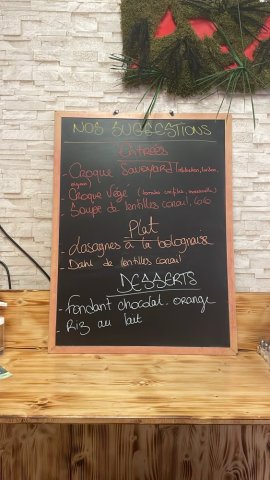 NOS SUGGESTIONS
ENTRÉES
- Croque Savoyard (
- Croque Végé (tomates confites, mozzarella)
- Soupe de lentilles corail, coco
Plat
- Lasagnes à la bolognaise
- Dahl de lentilles corail
DESSERTS
- Fondant chocolat - orange
- Riz au lait